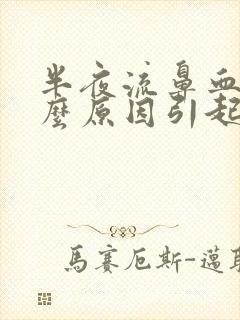 半夜流鼻血
麼原因引起
馬賽厄斯-邁耶